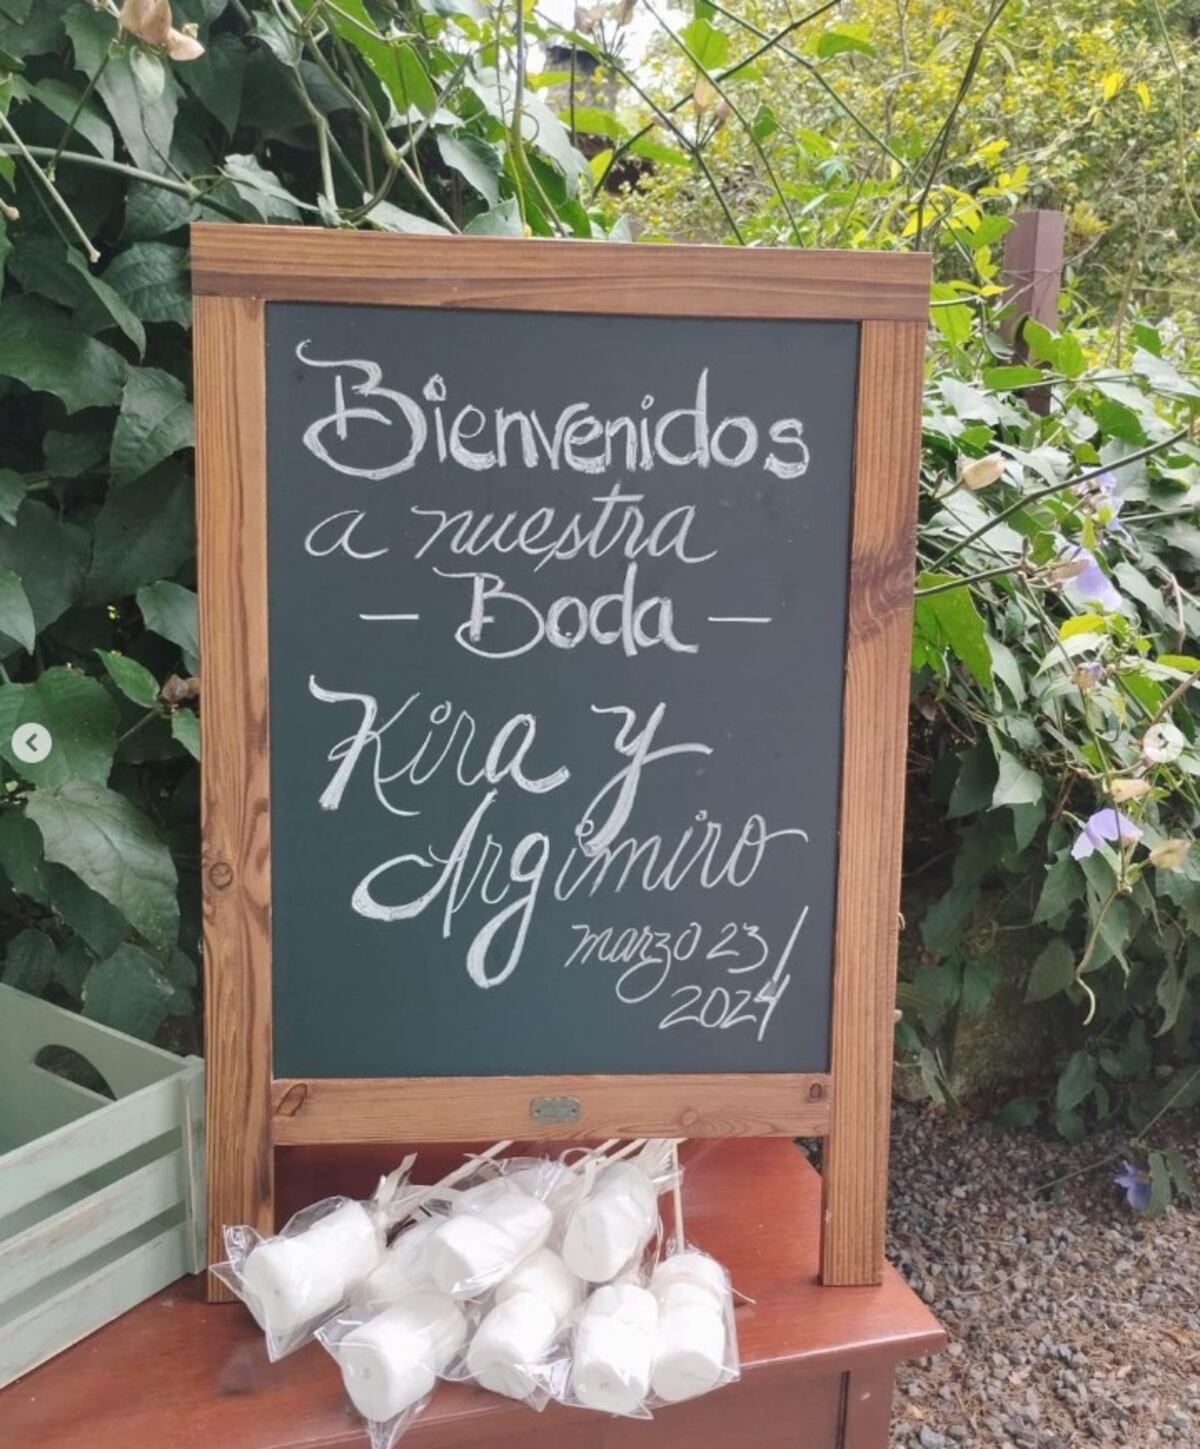 Bienvenidos
a nuestra
— Boda —
Kira y
Argimiro
marzo 23/
2024